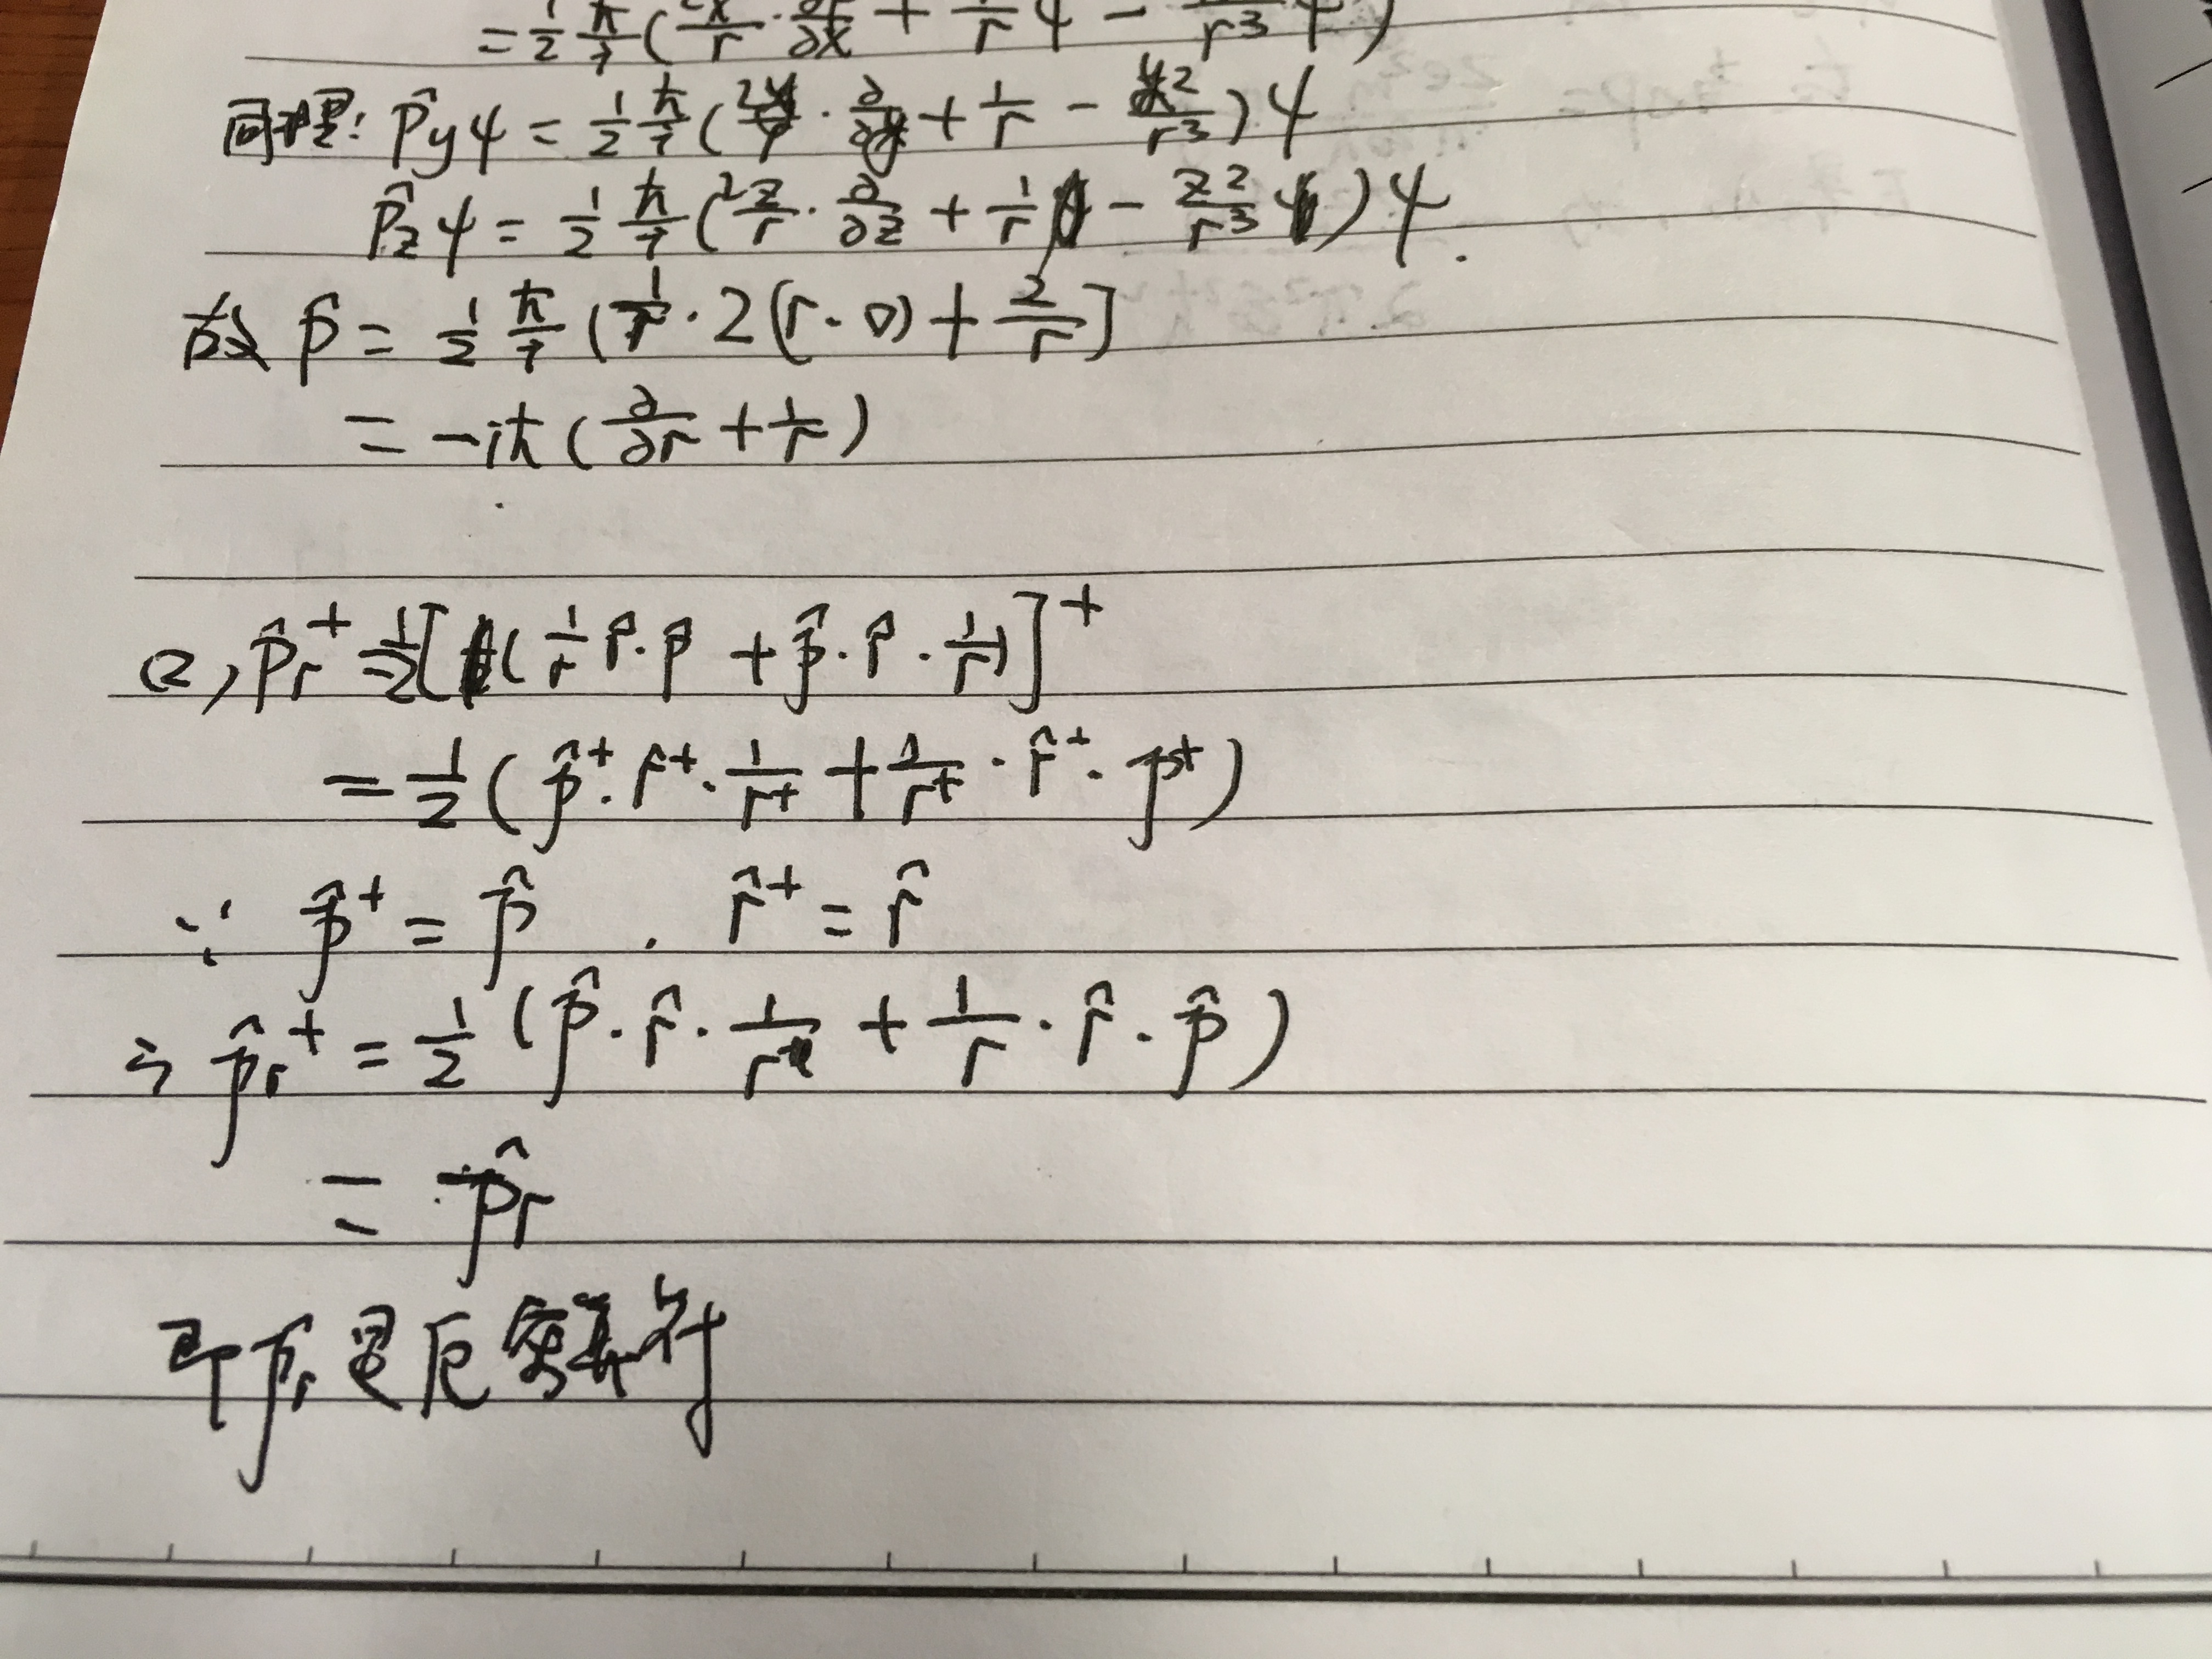 = 1/2 ħ/i (2x/r · ∂ψ/∂x + 1/r ψ - x²/r³ ψ)
同理: p̂yψ = 1/2 ħ/i (2y/r · ∂/∂y + 1/r - y²/r³)ψ
p̂zψ = 1/2 ħ/i (2z/r · ∂/∂z + 1/r - z²/r³)ψ.
故 p̂ = 1/2 ħ/i (1/r · 2(r·∇) + 2/r]
= -iħ (∂/∂r + 1/r)
(2) p̂r⁺ = 1/2[(1/r r̂·p̂ + p̂·r̂·1/r)]⁺
= 1/2 (p̂⁺·r⁺·1/r⁺ + 1/r⁺·r̂⁺·p⁺)
∵ p̂⁺ = p̂ , r̂⁺ = r̂
∴ p̂r⁺ = 1/2 (p̂·r̂·1/r + 1/r·r̂·p̂)
= p̂r
即p̂r是厄密算符